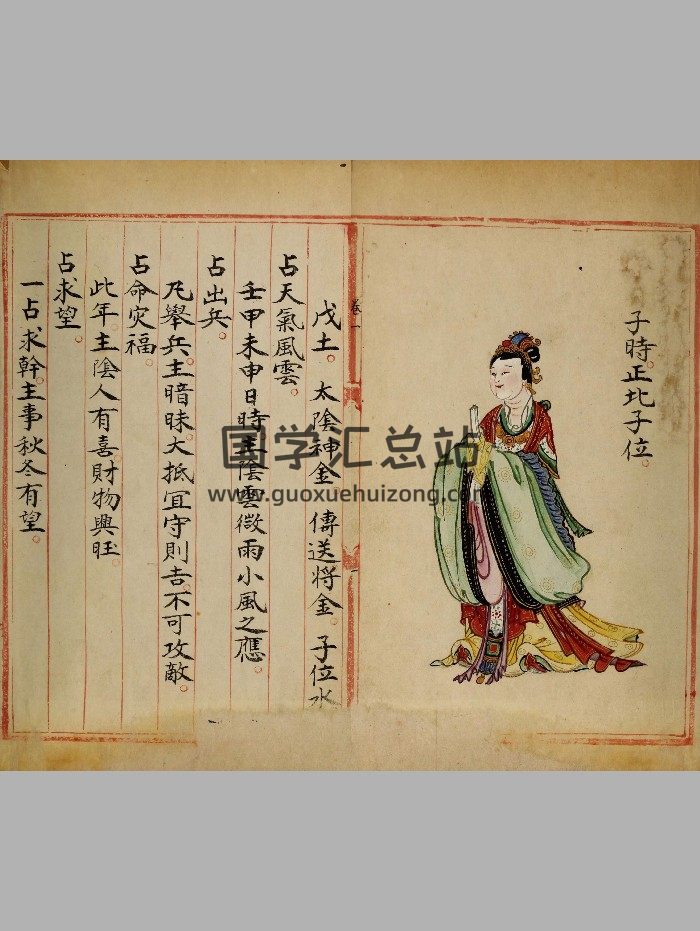 子時正北子位。
卷一
一
戊土。 太陰神金 傳送將金 子位水
占天氣風雲。
壬甲未申日時主陰雲微雨小風之應。
占出兵。
凡舉兵主暗昧大抵宜守則吉不可攻敵。
占命灾福。
此年主陰人有喜財物興旺。
占求望。
一占求幹主事秋冬有望。
国学汇总站
www.guoxuehuizong.com